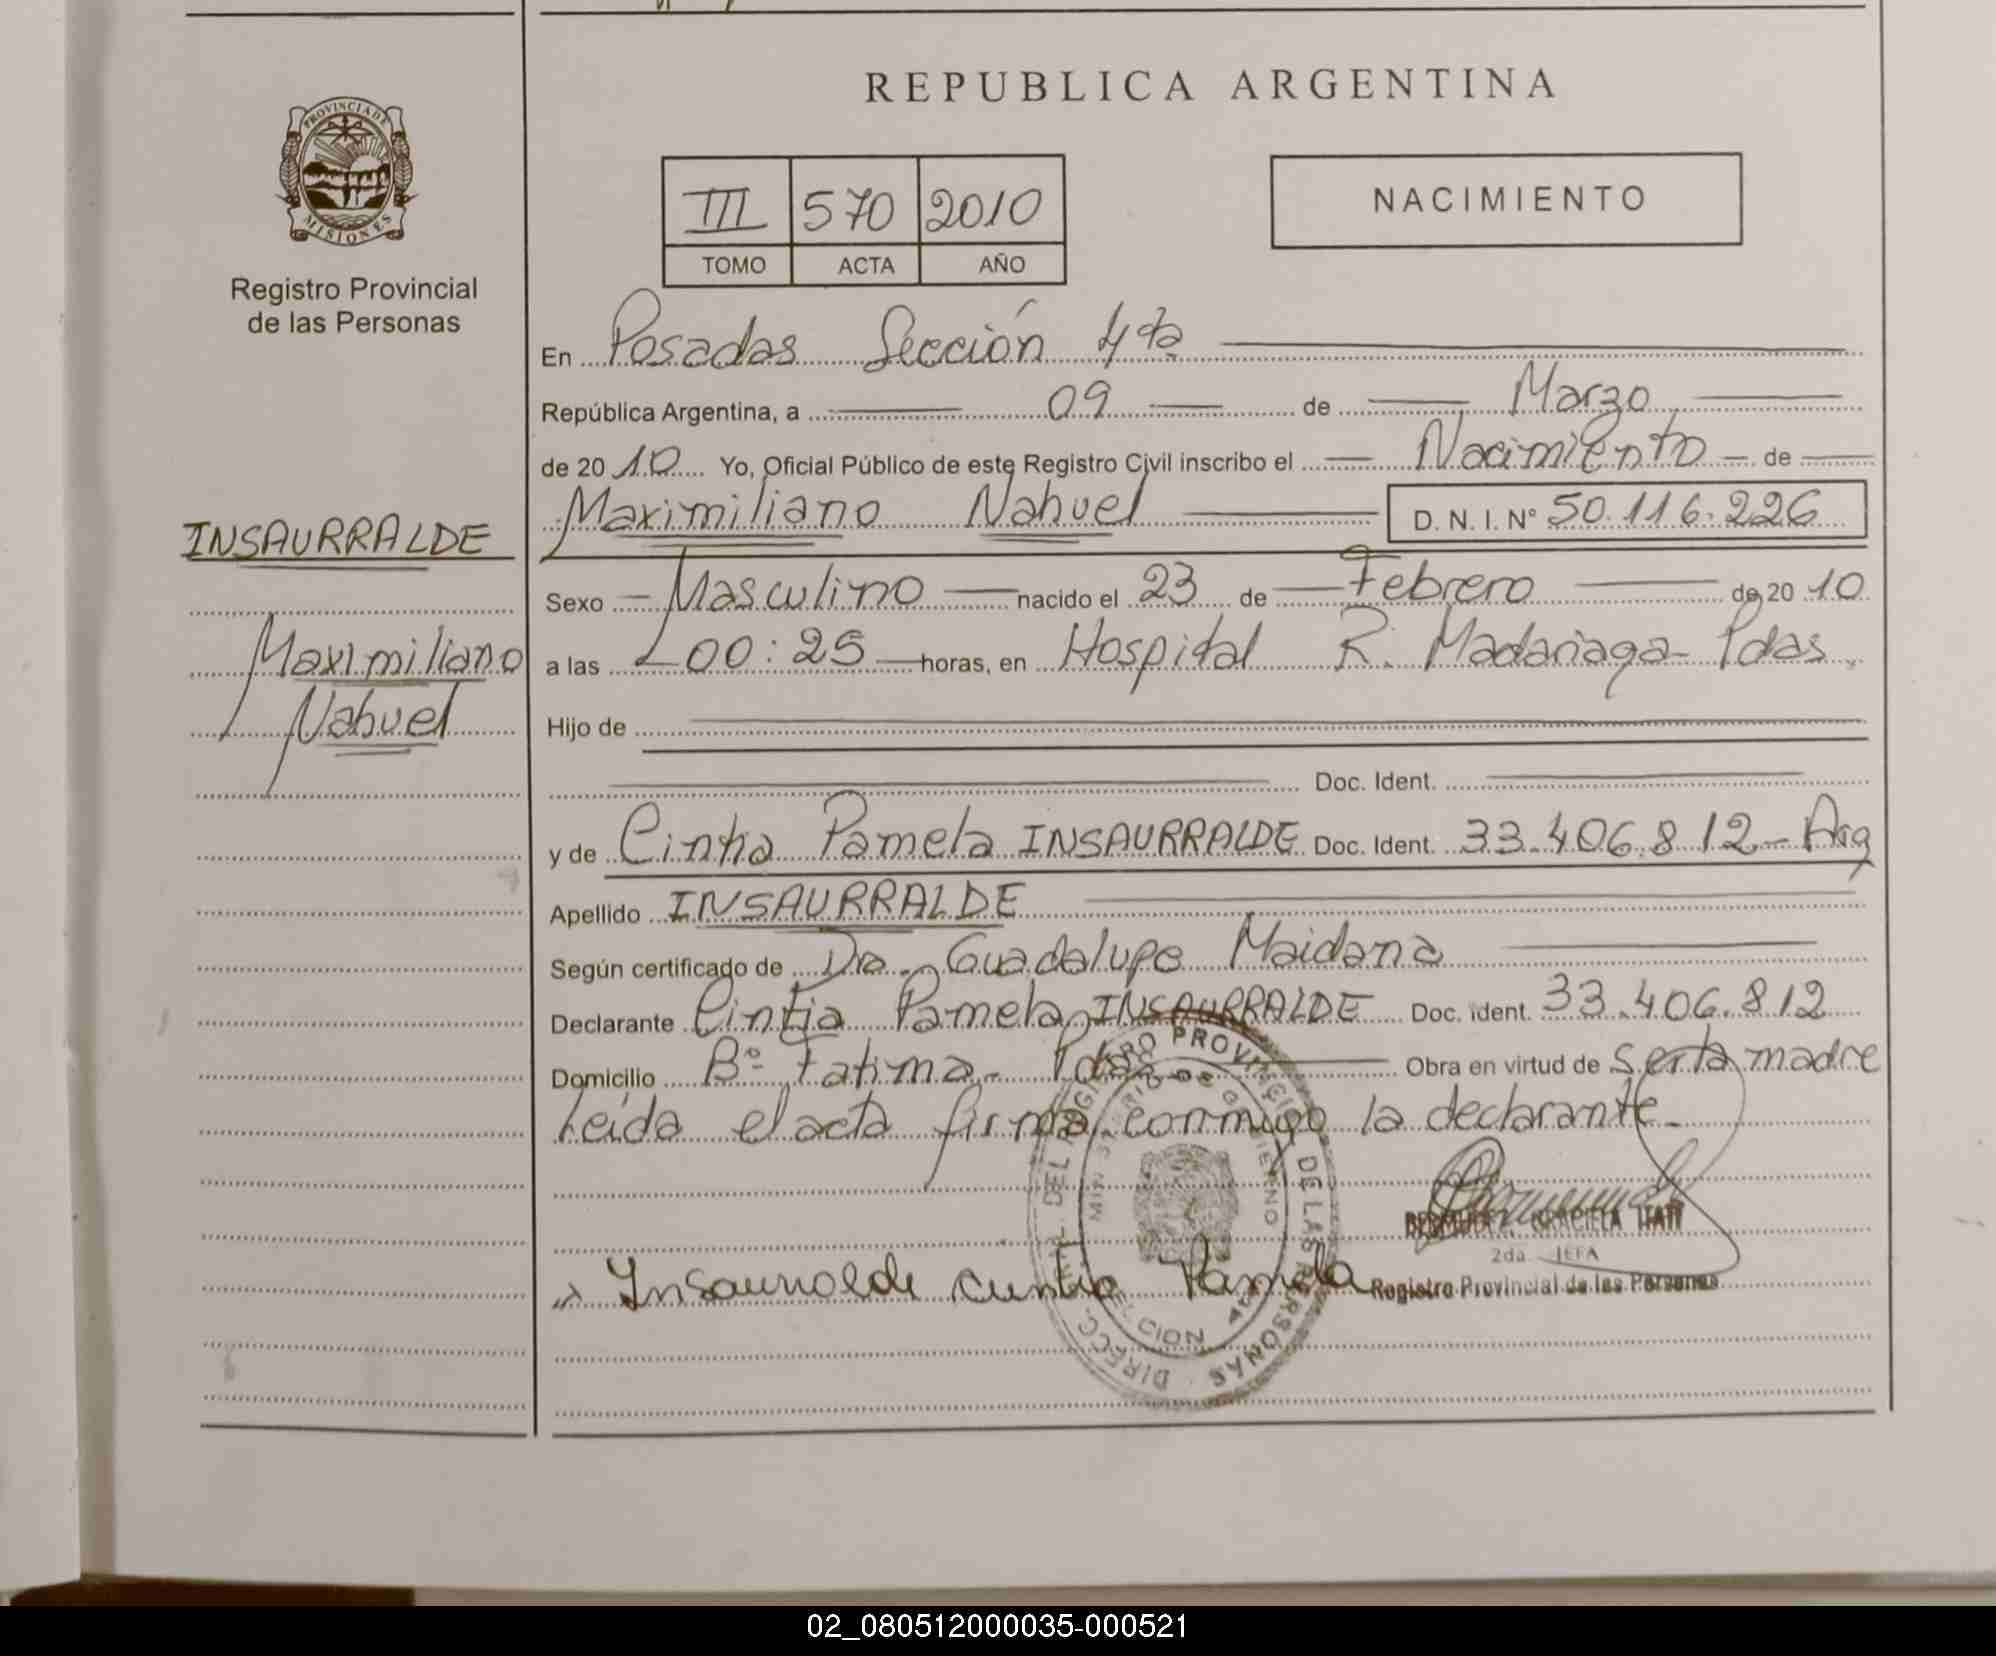 REPUBLICA ARGENTINA
PROVINCIA DE
MISIONES
Registro Provincial
de las Personas
III 570 2010
TOMO ACTA AÑO
NACIMIENTO
En Posadas Sección 4ta
República Argentina, a 09 de Marzo
de 2010 Yo, Oficial Público de este Registro Civil inscribo el Nacimiento de
Maximiliano Nahuel D. N. I. Nº 50.116.226
INSAURRALDE
Maximiliano
Nahuel
Sexo Masculino nacido el 23 de Febrero de 2010
a las 00:25 horas, en Hospital R. Madariaga - Pdas.
Hijo de
Doc. Ident.
y de Cintia Pamela INSAURRALDE Doc. Ident. 33.406.812 - Arg
Apellido INSAURRALDE
Según certificado de Dra. Guadalupe Maidana
Declarante Cintia Pamela INSAURRALDE Doc. ident. 33.406.812
Domicilio Bº Fatima - Pdas Obra en virtud de ser la madre
Leída el acta firma conmigo la declarante.
GRACIELA ITATI
2da JEFA
Registro Provincial de las Personas
Insaurralde Cintia Pamela
02_080512000035-000521